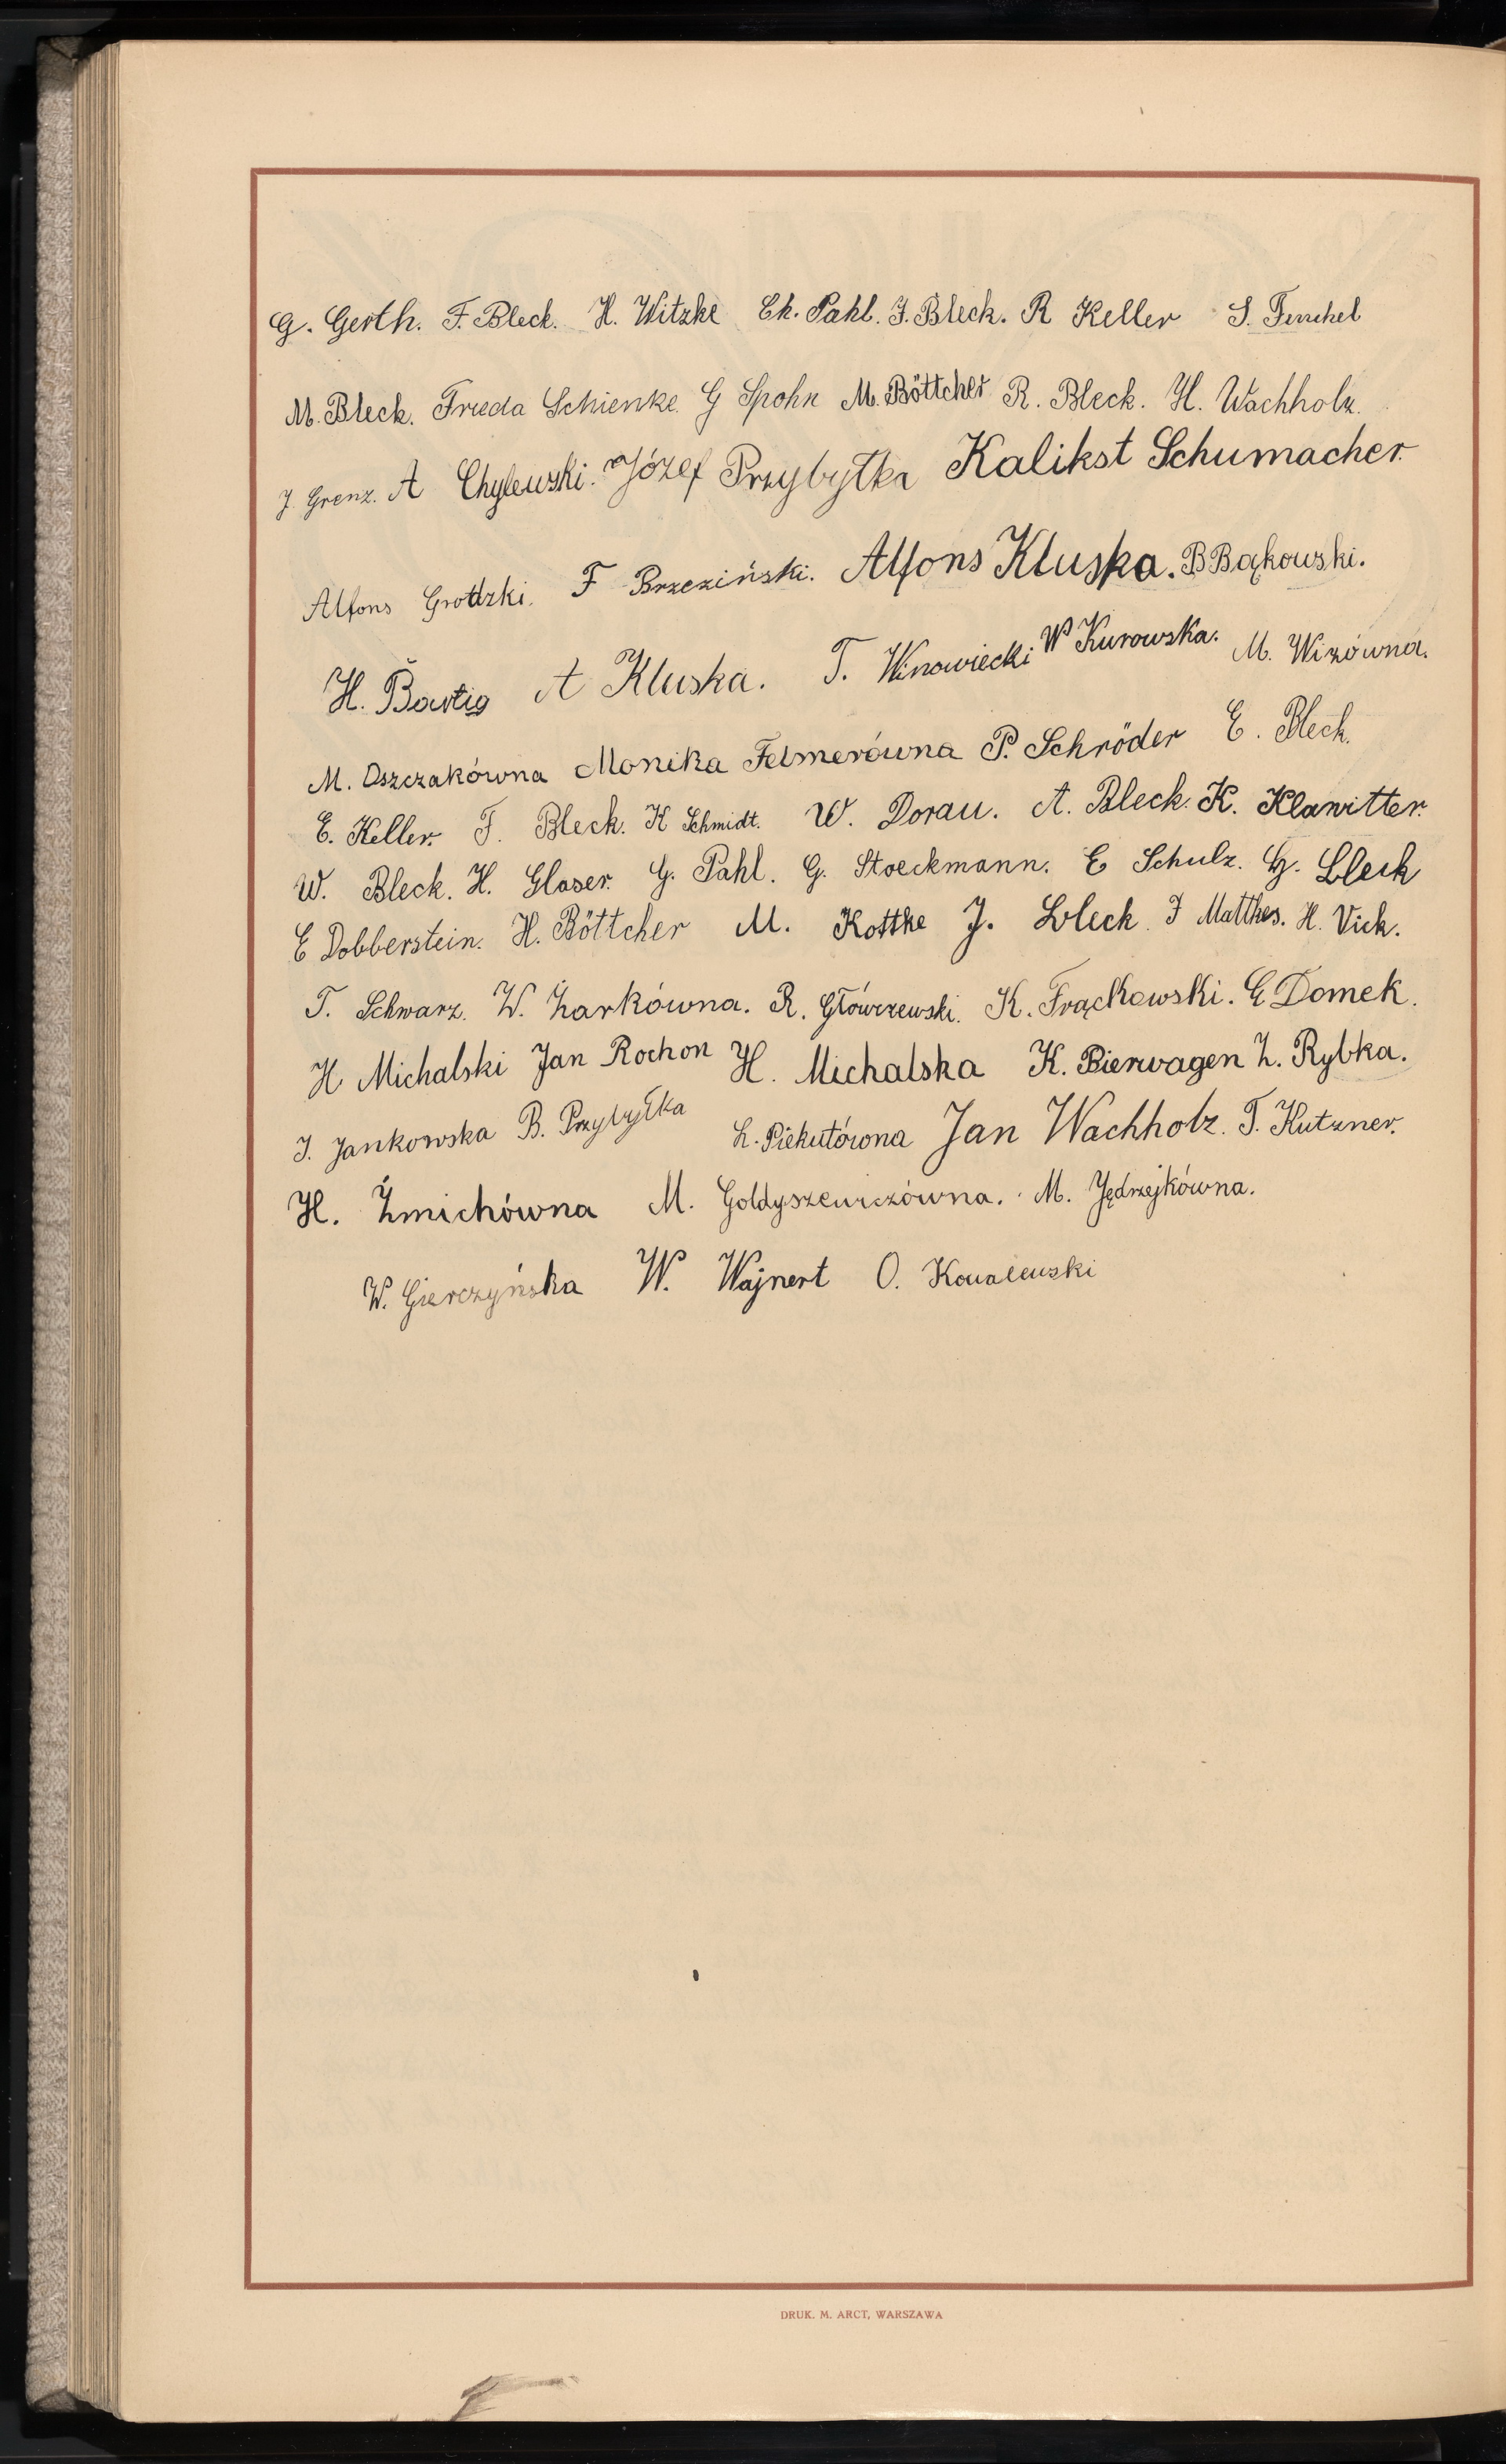 G. Gerth. F. Bleck. H. Witzke Ch. Pahl. J. Bleck. R Keller S.
M. Bleck. Frieda Schienke. G Spohn M. Böttcher R. Bleck. H. Wachholz.
J. Grenz. A Chylewski. Józef Przybytka Kalikst Schumacher.
Alfons Grodzki. F Brzeziński. Alfons Kluska. B Bąkowski.
H. Bartig A Kluska. T. Winowiecki W Kurowska. M. Wizówna.
M. Oszczakówna Monika Felmerówna P. Schröder E. Bleck.
E. Keller. F. Bleck. K Schmidt. W. Dorau. A. Bleck. K. Klawitter.
W. Bleck. H. Glaser. G. Pahl. G. Stoeckmann. E Schulz. G. Bleck
E Dobberstein. H. Böttcher M. Kottke J. Bleck. J Matthes. H. Vick.
T. Schwarz. W. Żarkówna. R. Główczewski. K. Frąckowski. E Domek.
H Michalski Jan Rochon H. Michalska K. Bierwagen Z. Rybka.
J. Jankowska B. Przybyłka Z. Piekutówna Jan Wachholz. T. Kutzner.
H. Żmichówna M. Goldyszewiczówna. M. Jędrzejkówna.
W. Gierczyńska W. Wajnert O. Kowalewski
DRUK. M. ARCT, WARSZAWA